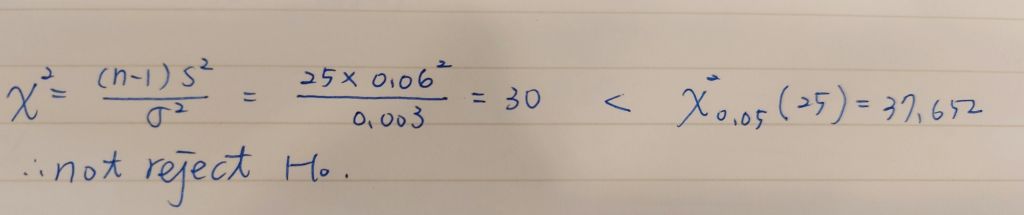 χ² = (n-1)s²/σ² = 25×0.06²/0.003 = 30 < χ²0.05(25) = 37.652
∴ not reject H₀.